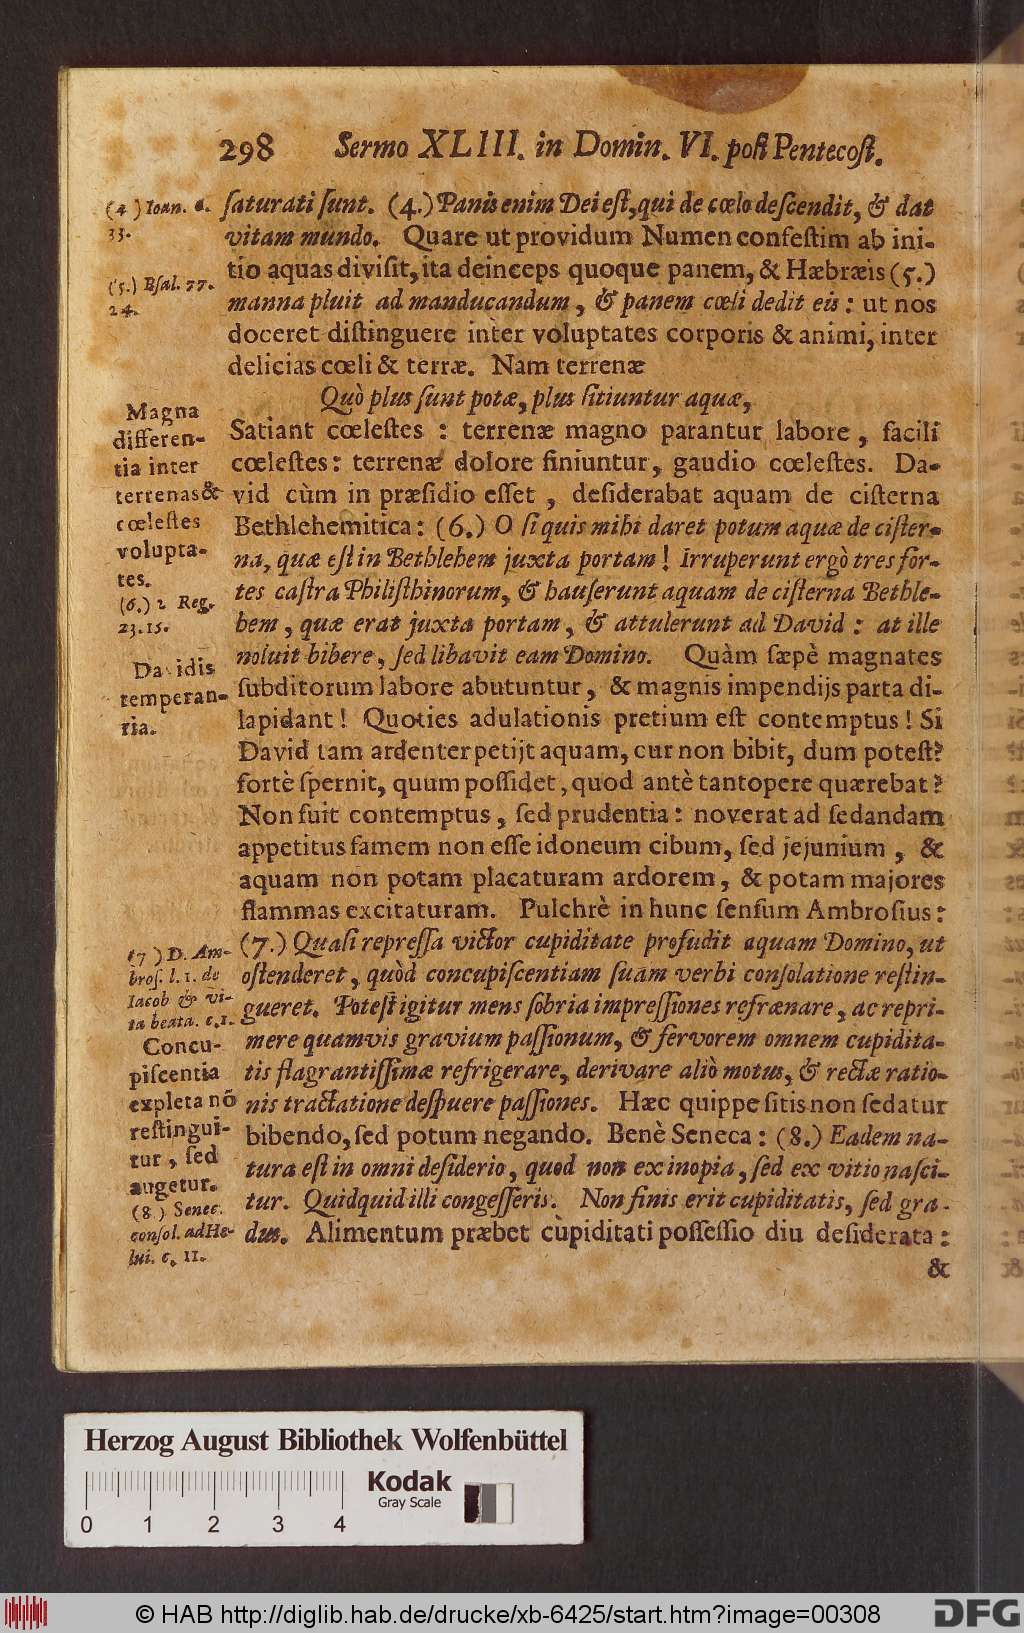 298 Sermo XLIII. in Domin. VI. post Pentecost.
(4) Ioan. 6.
33.
(5.) Psal. 77.
24.
Magna
differen-
tia inter
terrenas &
cœlestes
volupta-
tes.
(6.) 2 Reg.
23. 15.
Davidis
temperan-
tia.
(7) D. Am-
bros. l. 1. de
Iacob & vi-
ta beata. c. 1.
Concu-
piscentia
expleta nõ
restingui-
tur, sed
augetur.
(8) Senec.
consol. ad He-
lui. c. 11.
saturati sunt. (4.) Panis enim Dei est, qui de cœlo descendit, & dat
vitam mundo. Quare ut providum Numen confestim ab ini-
tio aquas divisit, ita deinceps quoque panem, & Hæbræis (5.)
manna pluit ad manducandum, & panem cœli dedit eis: ut nos
doceret distinguere inter voluptates corporis & animi, inter
delicias cœli & terræ. Nam terrenæ
Quò plus sunt potæ, plus sitiuntur aquæ,
Satiant cœlestes: terrenæ magno parantur labore, facili
cœlestes: terrenæ dolore finiuntur, gaudio cœlestes. Da-
vid cùm in præsidio esset, desiderabat aquam de cisterna
Bethlehemitica: (6.) O si quis mihi daret potum aquæ de cister-
na, quæ est in Bethlehem juxta portam! Irruperunt ergò tres for-
tes castra Philisthinorum, & hauserunt aquam de cisterna Bethle-
hem, quæ erat juxta portam, & attulerunt ad David: at ille
noluit bibere, sed libavit eam Domino. Quàm sæpè magnates
subditorum labore abutuntur, & magnis impendijs parta di-
lapidant! Quoties adulationis pretium est contemptus! Si
David tam ardenter petijt aquam, cur non bibit, dum potest?
fortè spernit, quum possidet, quod antè tantopere quærebat?
Non fuit contemptus, sed prudentia: noverat ad sedandam
appetitus famem non esse idoneum cibum, sed jejunium, &
aquam non potam placaturam ardorem, & potam majores
flammas excitaturam. Pulchrè in hunc sensum Ambrosius:
(7.) Quasi repressa victor cupiditate profudit aquam Domino, ut
ostenderet, quòd concupiscentiam suam verbi consolatione restin-
gueret. Potest igitur mens sobria impressiones refrænare, ac repri-
mere quamvis gravium passionum, & fervorem omnem cupidita-
tis flagrantissimæ refrigerare, derivare aliò motus, & rectæ ratio-
nis tractatione despuere passiones. Hæc quippe sitis non sedatur
bibendo, sed potum negando. Benè Seneca: (8.) Eadem na-
tura est in omni desiderio, quod non ex inopia, sed ex vitio nasci-
tur. Quidquid illi congesseris. Non finis erit cupiditatis, sed gra-
dus. Alimentum præbet cupiditati possessio diu desiderata:
&
Herzog August Bibliothek Wolfenbüttel
Kodak
Gray Scale
0 1 2 3 4
© HAB http://diglib.hab.de/drucke/xb-6425/start.htm?image=00308
DFG